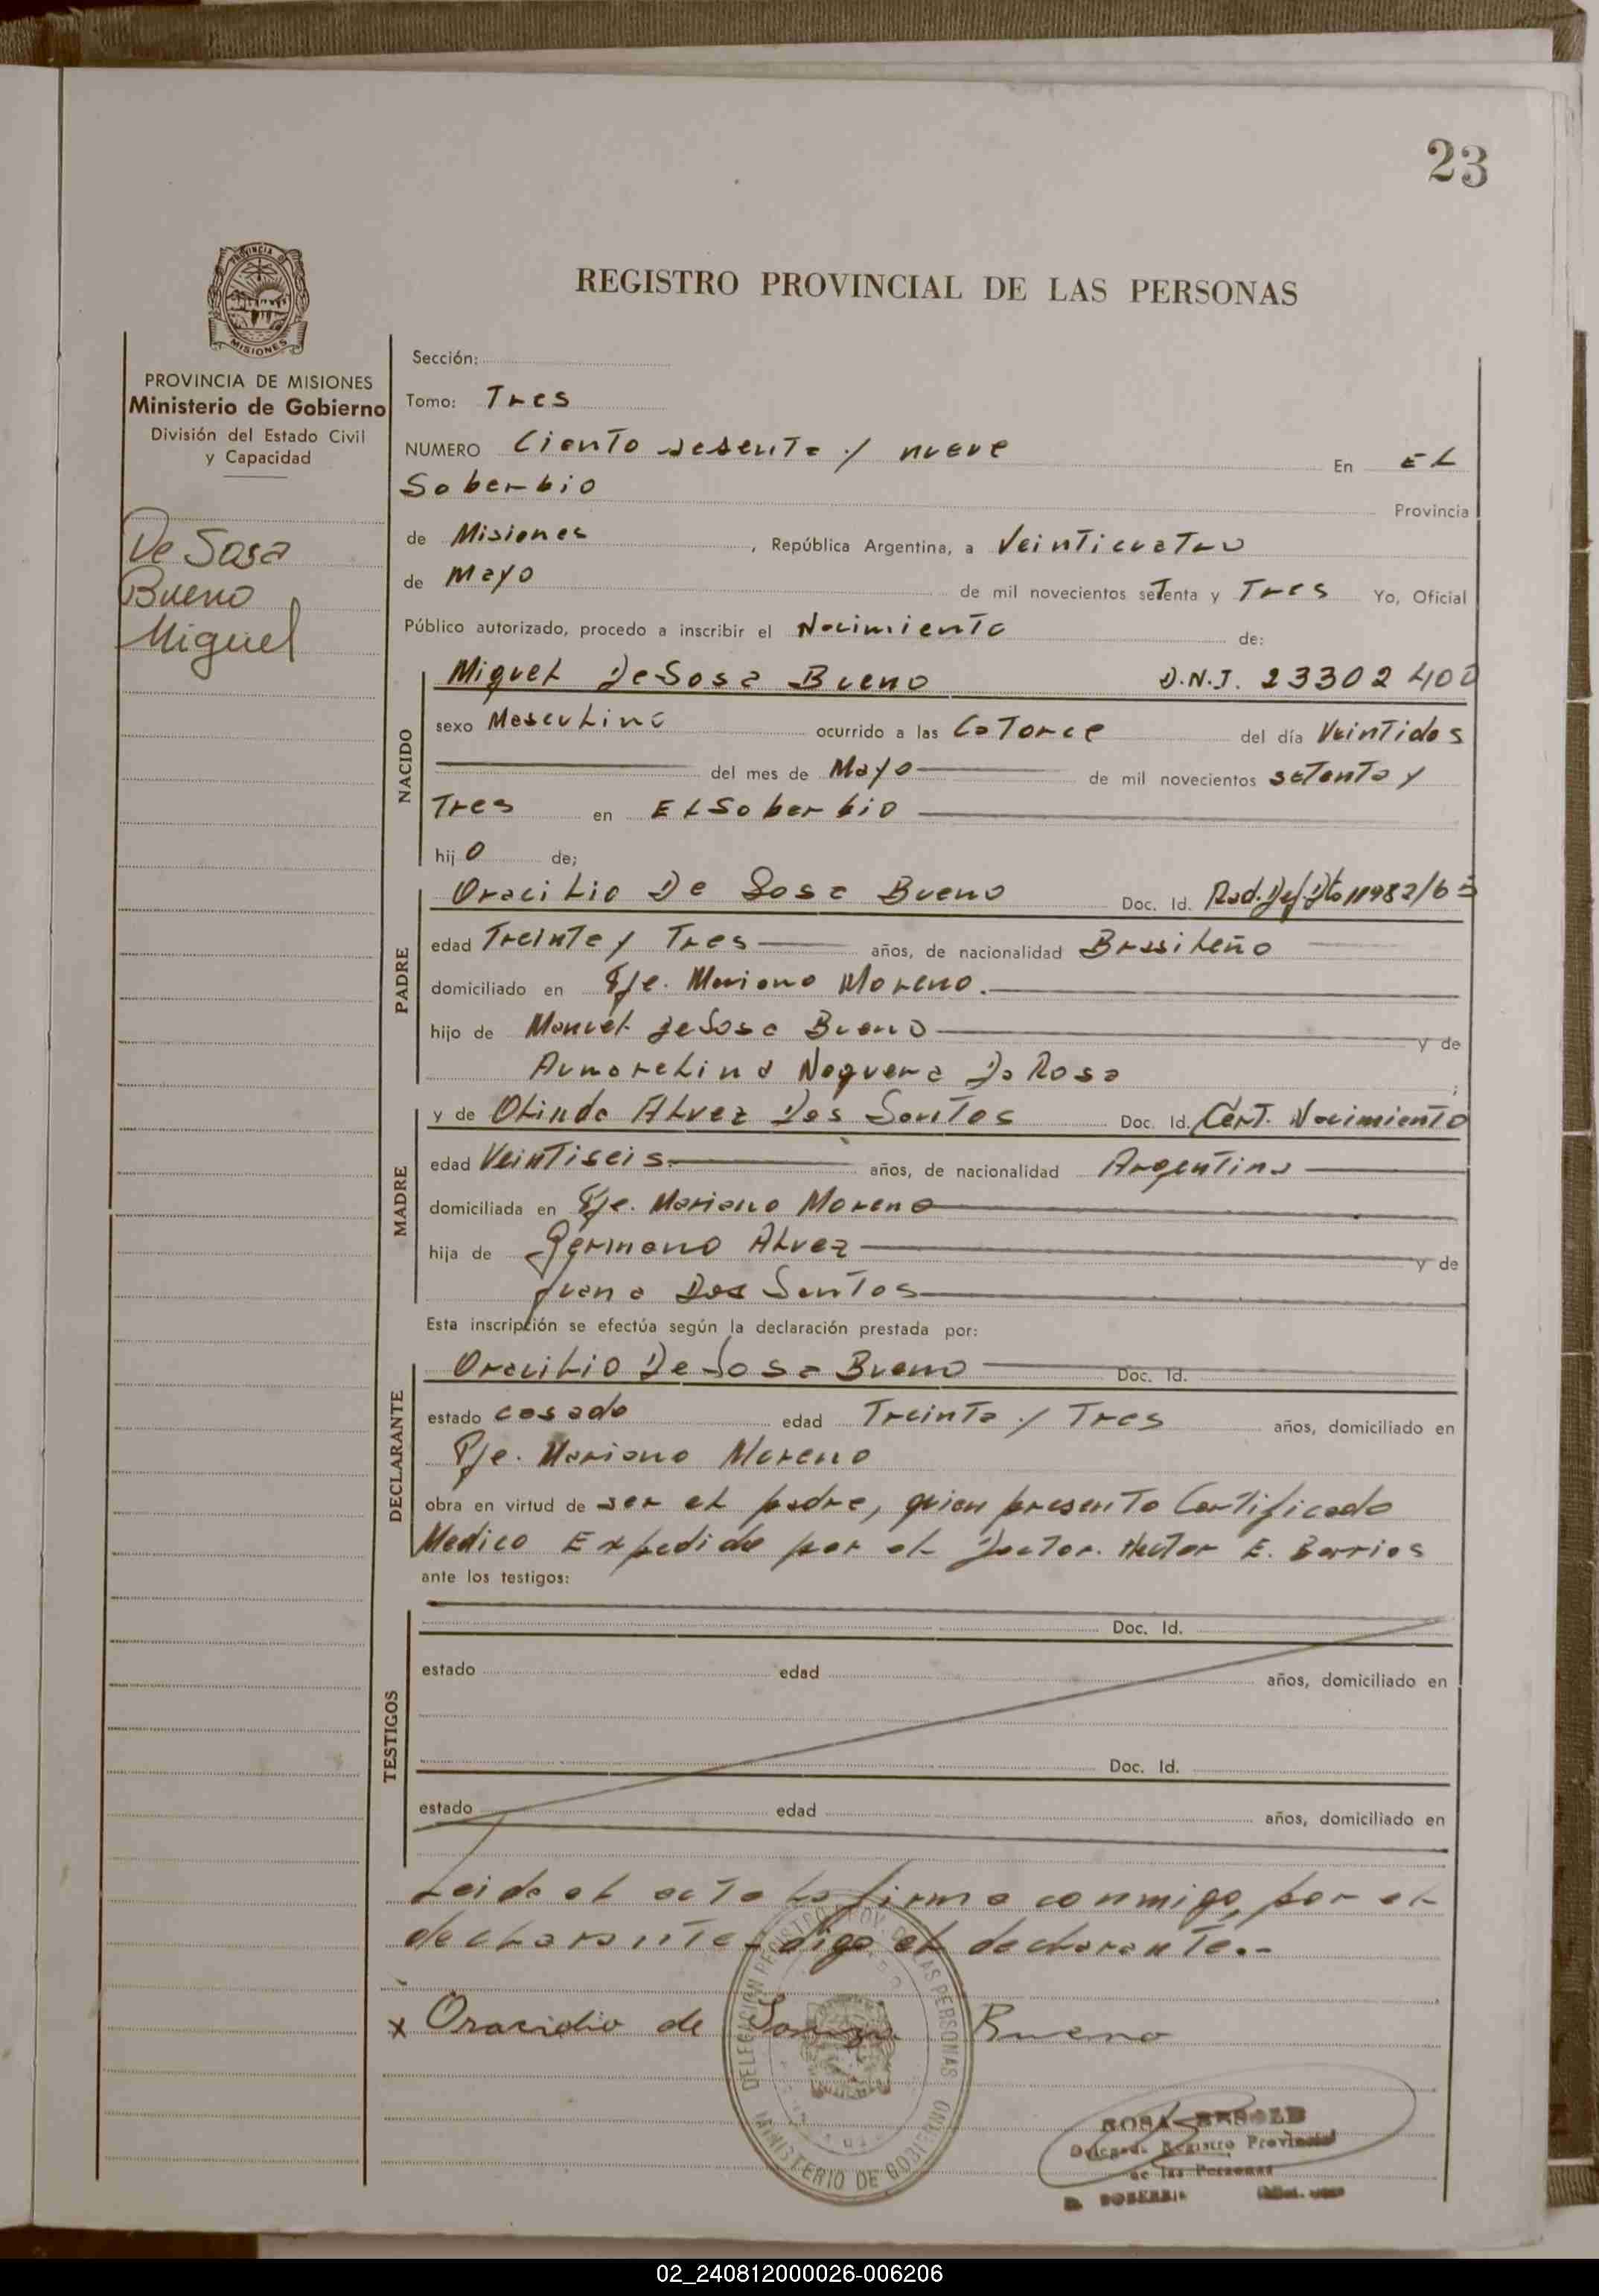 23
PROVINCIA DE
MISIONES
REGISTRO PROVINCIAL DE LAS PERSONAS
PROVINCIA DE MISIONES
Ministerio de Gobierno
División del Estado Civil
y Capacidad
De Sosa
Bueno
Miguel
Sección:
Tomo: Tres
NUMERO Ciento sesenta y nueve En EL
Soberbio
Provincia
de Misiones, República Argentina, a Veinticuatro
de Mayo de mil novecientos setenta y Tres Yo, Oficial
Público autorizado, procedo a inscribir el Nacimiento de:
NACIDO
Miguel De Sosa Bueno D.N.I. 23302400
sexo Masculino ocurrido a las Catorce del día Veintidos
del mes de Mayo de mil novecientos setenta y
Tres en El Soberbio
hijo de;
PADRE
Oracilio De Sosa Bueno Doc. Id. Rad. Def. Dto 11982/65
edad Treinta y Tres años, de nacionalidad Brasileño
domiciliado en Pje. Mariano Moreno.
hijo de Manuel De Sosa Bueno y de
Aumorelina Noguera Da Rosa ;
MADRE
y de Olinda Alvez Dos Santos Doc. Id. Cert. Nacimiento
edad Veintiseis. años, de nacionalidad Argentina
domiciliada en Pje. Mariano Moreno
hija de Germano Alvez y de
Juana Dos Santos
Esta inscripción se efectúa según la declaración prestada por:
DECLARANTE
Oracilio De Sosa Bueno Doc. Id.
estado casado edad Treinta y Tres años, domiciliado en
Pje. Mariano Moreno
obra en virtud de ser el padre, quien presento Certificado
Medico Expedido por el Doctor. Hector E. Barrios
ante los testigos:
TESTIGOS
Doc. Id.
estado edad años, domiciliado en
Doc. Id.
estado edad años, domiciliado en
Leida el acta la firma conmigo, por el
declarante - digo el declarante.-
x Orasidio de Souza Bueno
DELEGACION REGISTRO PROV. DE LAS PERSONAS
MINISTERIO DE GOBIERNO
ROSA
Delegada Registro Provincial
de las Personas
EL SOBERBIO
02_240812000026-006206